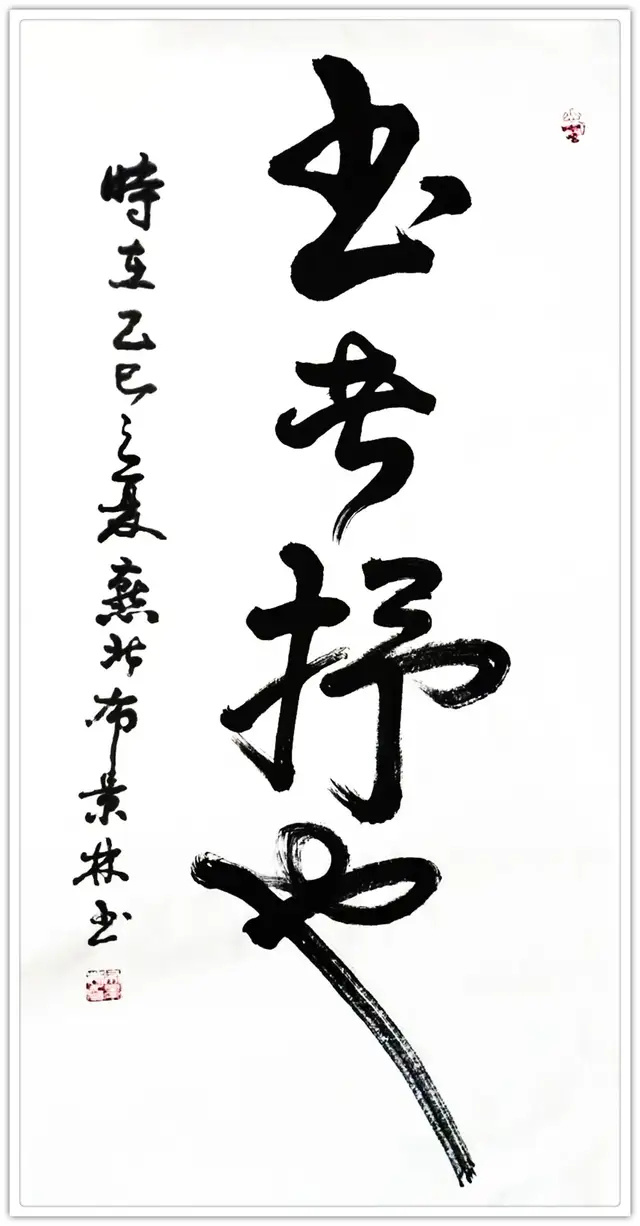 书者抒也
時在乙巳之夏燕北布景林书